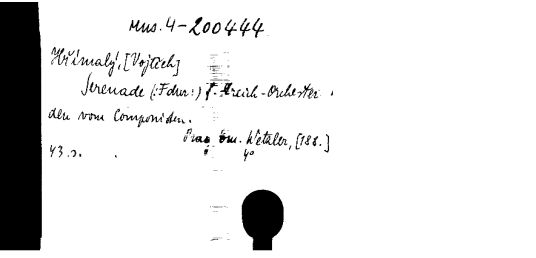 Mus. 4-200444
Hřímalý, [Vojtěch]
Serenade (: Fdur :) f. Streich-Orchester
den vom Componisten.
Prag Em. Wetzler, [188.]
43 S. 4°